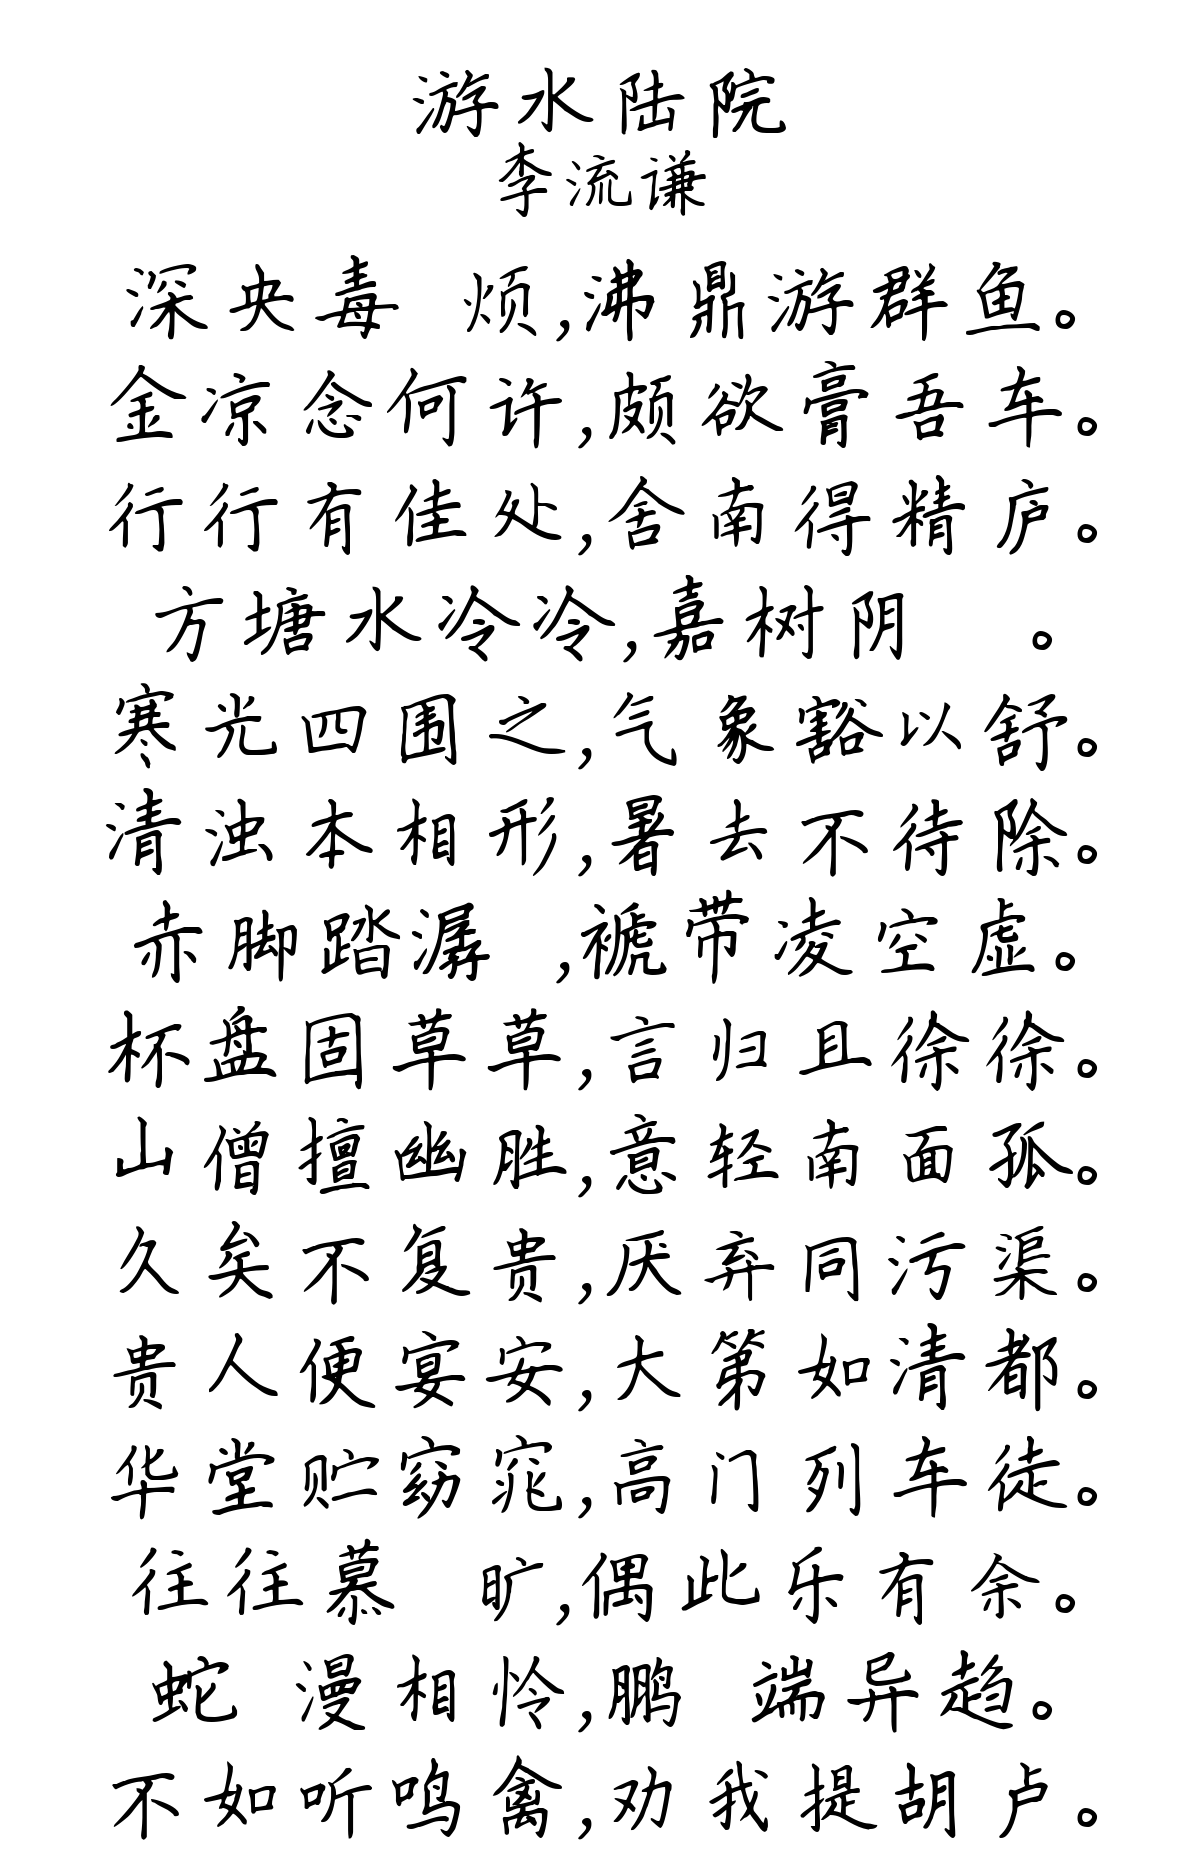 游水陆院
李流谦
深央毒 烦,沸鼎游群鱼。
金凉念何许,颇欲膏吾车。
行行有佳处,舍南得精庐。
方塘水冷冷,嘉树阴 。
寒光四围之,气象豁以舒。
清浊本相形,暑去不待除。
赤脚踏潺 ,褫带凌空虚。
杯盘固草草,言归且徐徐。
山僧擅幽胜,意轻南面孤。
久矣不复贵,厌弃同污渠。
贵人便宴安,大第如清都。
华堂贮窈窕,高门列车徒。
往往慕 旷,偶此乐有余。
蛇 漫相怜,鹏 端异趋。
不如听鸣禽,劝我提胡卢。